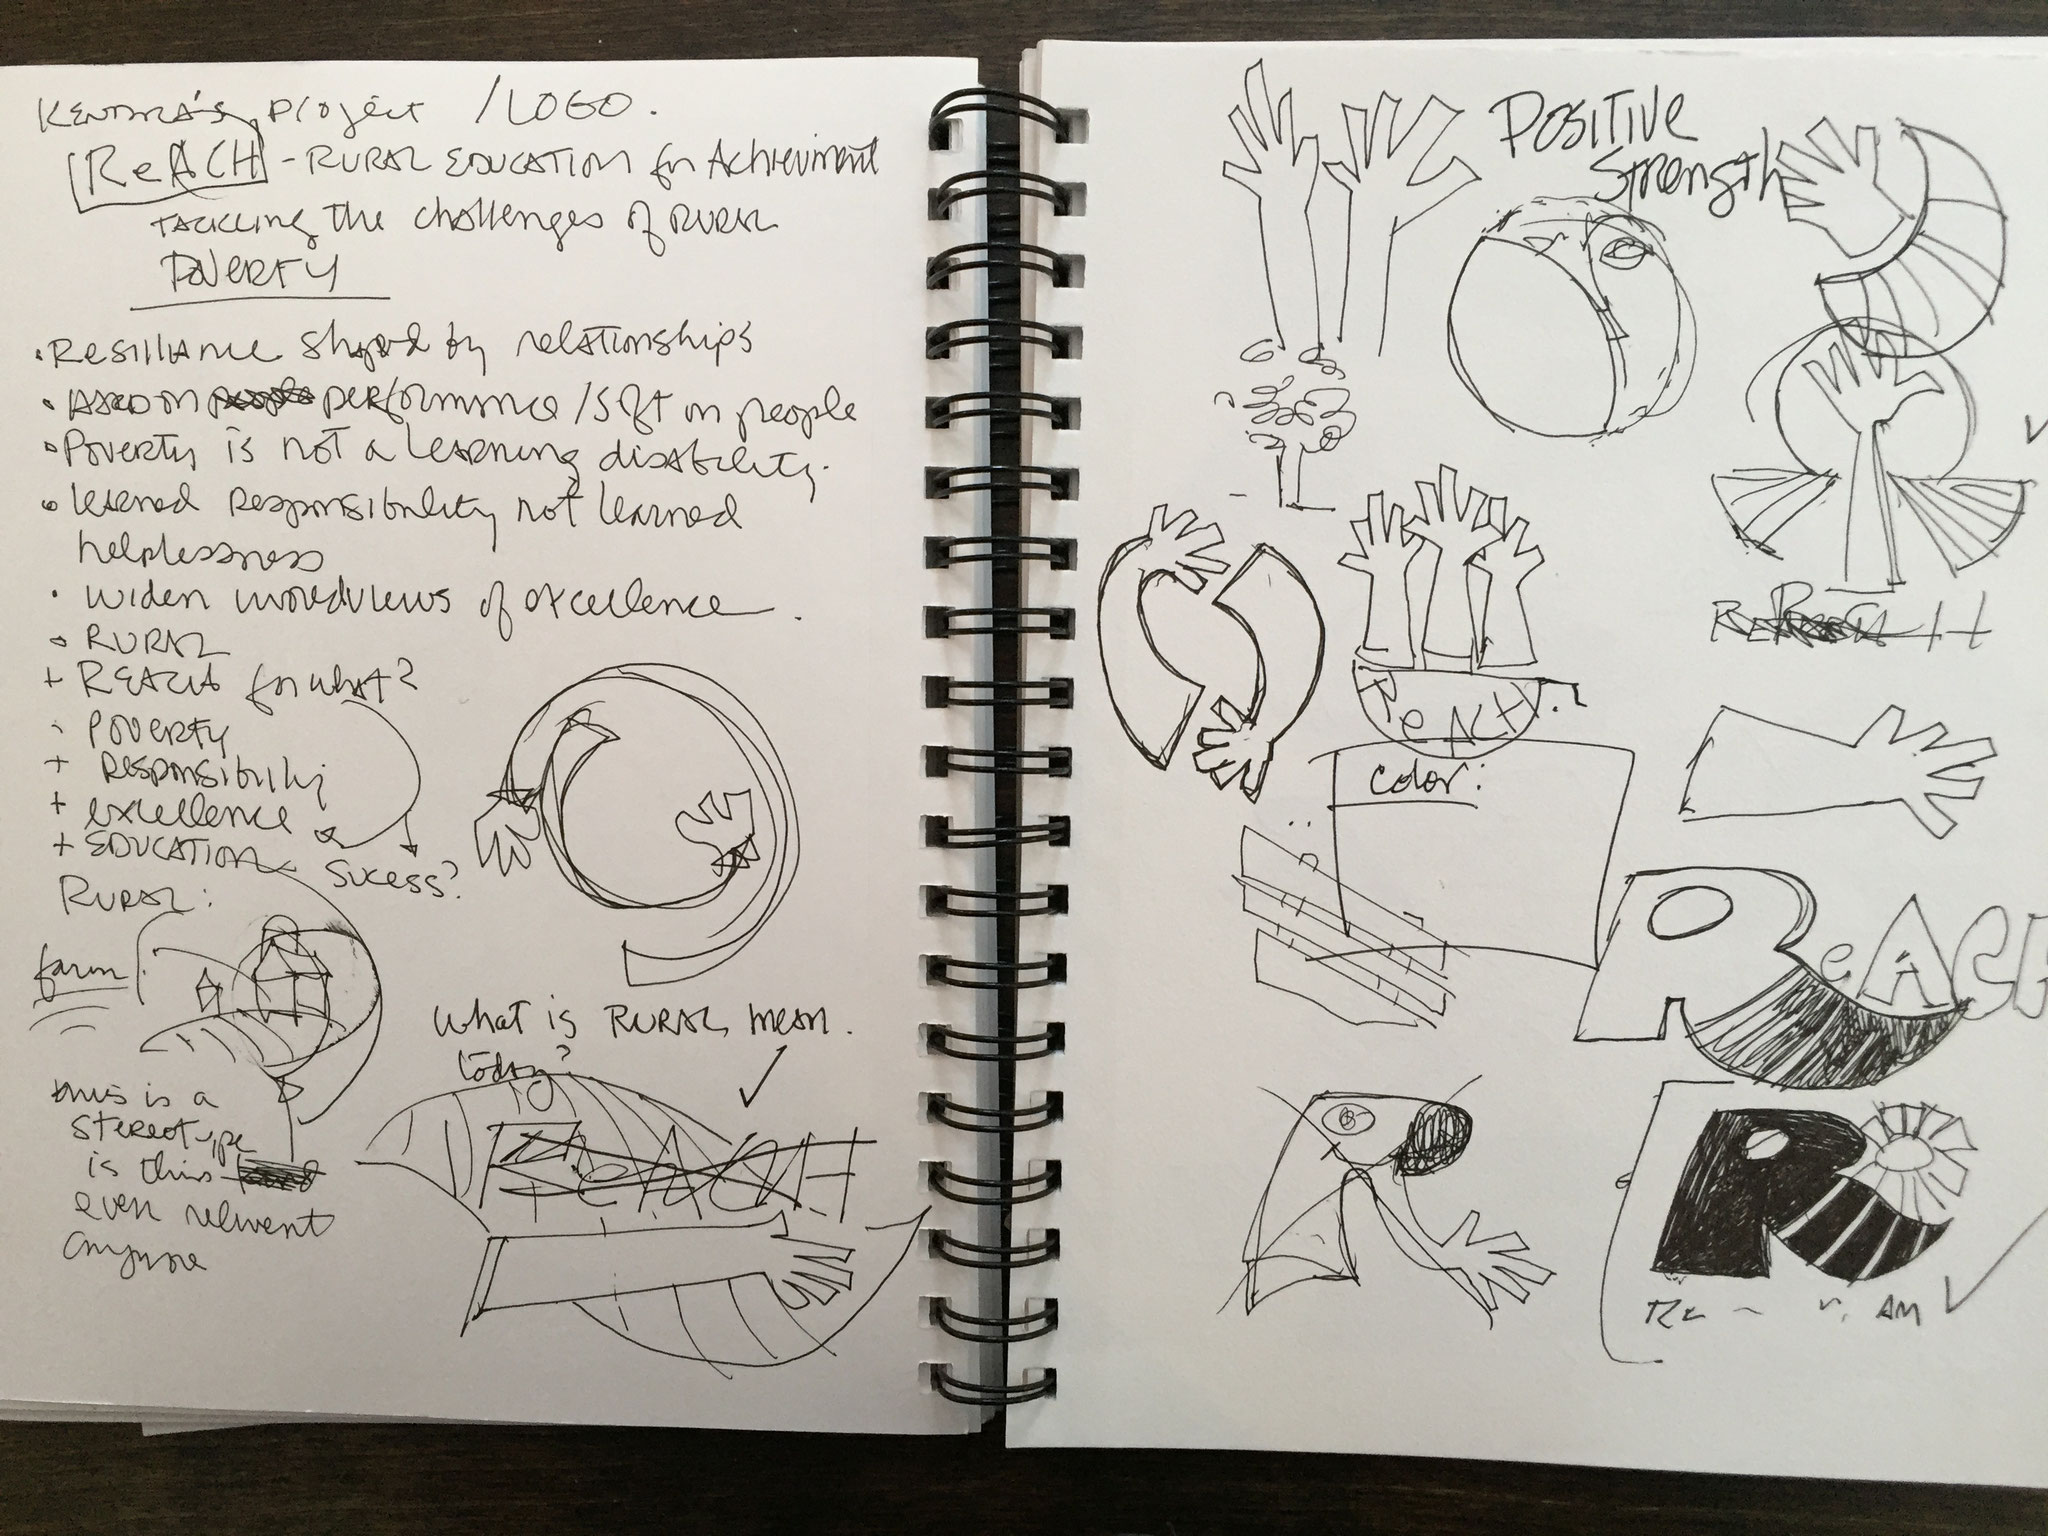 KENDRA'S Project /LOGO.
ReACH - RURAL EDUCATION for Achievment
TACKLING THE challenges of RURAL
POVERTY
• Resilliance shaped by relationships
• BASED ON performance / SOFT on people
• Poverty is not a Learning disability.
• learned responsibility not learned
helplessness
• widen worldviews of excellence.
• RURAL
+ REACH for what?
- POVERTY
+ Responsibility
+ excellence
+ EDUCATION
Sucess?
RURAL:
farm
What is RURAL mean.
today?
this is a
stereotype
is this
even relivent
anymore
ReACH
POSITIVE
Strength
ReACH
color:
ReACH